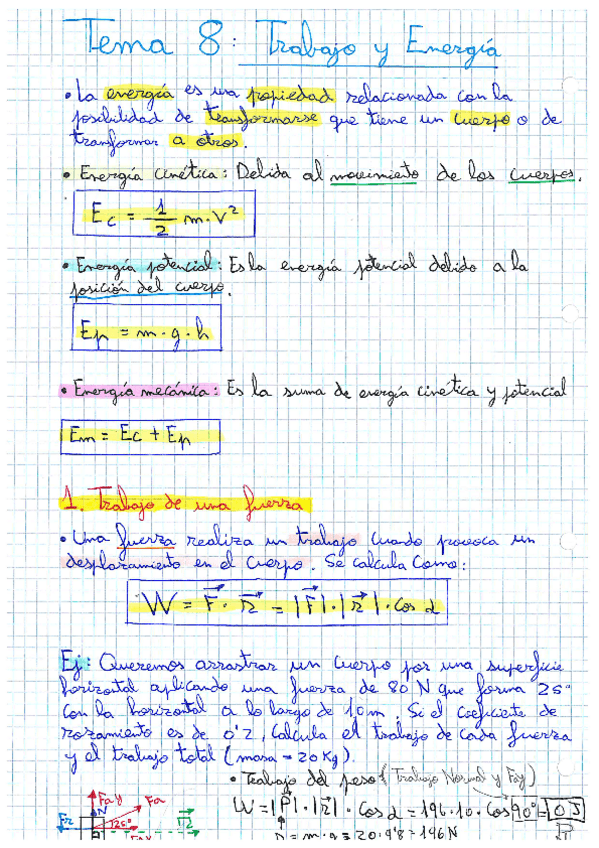 Tema 8: Trabajo y Energía
• La energía es una propiedad relacionada con la
posibilidad de transformarse que tiene un cuerpo o de
transformar a otros.
• Energía cinética: Debida al movimiento de los cuerpos.
Ec = 1/2 m·v²
• Energía potencial: Es la energía potencial debido a la
posición del cuerpo.
Ep = m·g·h
• Energía mecánica: Es la suma de energía cinética y potencial
Em = Ec + Ep
1. Trabajo de una fuerza
• Una fuerza realiza un trabajo cuando provoca un
desplazamiento en el cuerpo. Se calcula como:
W = F⃗ · r⃗ = |F⃗|·|r⃗|·cos α
Ej: Queremos arrastrar un cuerpo por una superficie
horizontal aplicando una fuerza de 80 N que forma 25°
con la horizontal a lo largo de 10 m. Si el coeficiente de
rozamiento es de 0'2, calcula el trabajo de cada fuerza
y el trabajo total (masa = 20 Kg).
• Trabajo del peso (Trabajo Normal y Fay)
W = |P⃗|·|r⃗|·cos α = 196·10·cos 90° = 0 J
P = m·g = 20·9'8 = 196 N
Fay
N
Fa
Fr
25°
r⃗
Fax